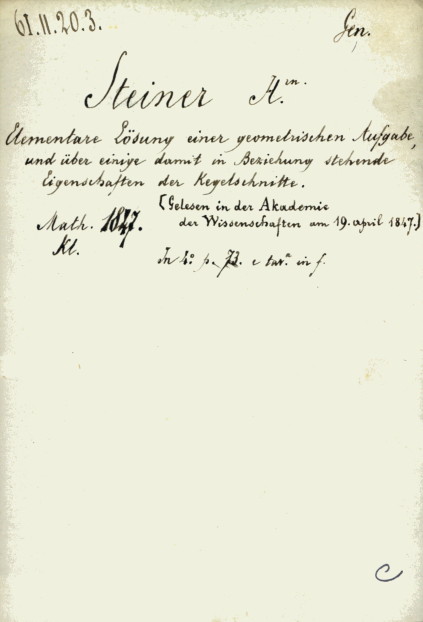 61.11.20.3.
Gen.
Steiner H.in.
Elementare Lösung einer geometrischen Aufgabe,
und über einige damit in Beziehung stehende
Eigenschaften der Kegelschnitte.
[Gelesen in der Akademie
der Wissenschaften am 19. april 1847.]
Math. 1847.
Kl.
In 4.o p. 73. e tav.a in f.
C